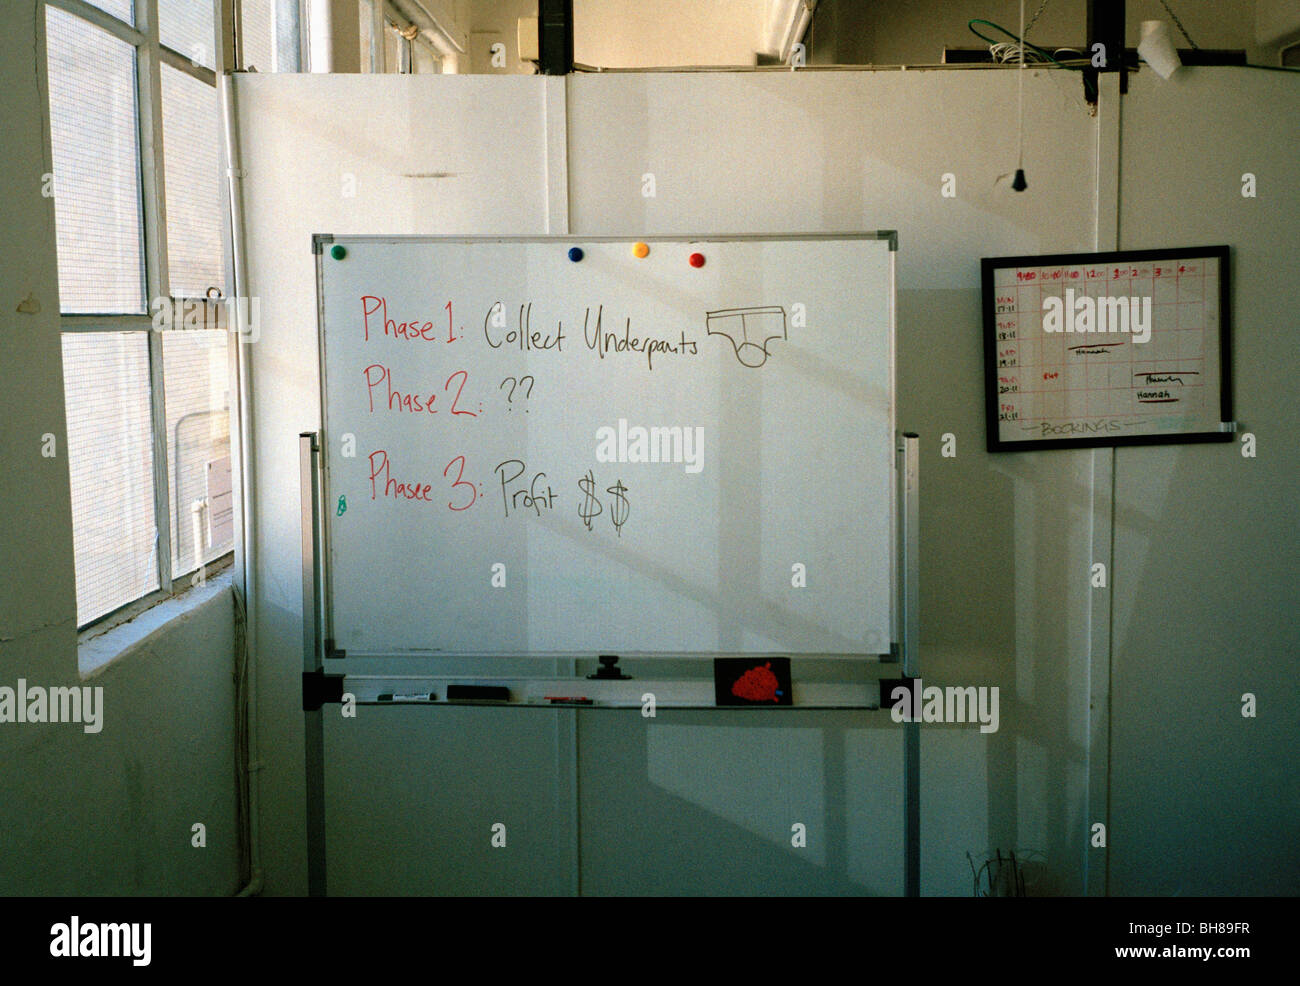 Phase 1: Collect Underpants
Phase 2: ??
Phasee 3: Profit $$
9:00 10:00 11:00 12:00 1:00 2:00 3:00 4:00
MON
17-11
TUES
18-11
WED
19-11
Hannah
20-11
Hannah
FRI
21-11
BOOKINGS
a
alamy
alamy
Image ID: BH89FR
www.alamy.com